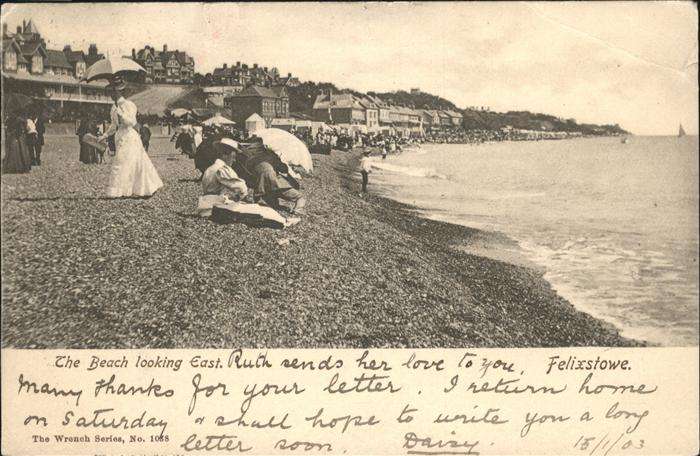 The Beach looking East. Ruth sends her love to you. Felixstowe.
Many thanks for your letter. I return home
on Saturday & shall hope to write you a long
The Wrench Series, No. letter soon. Daisy. 15/1/03